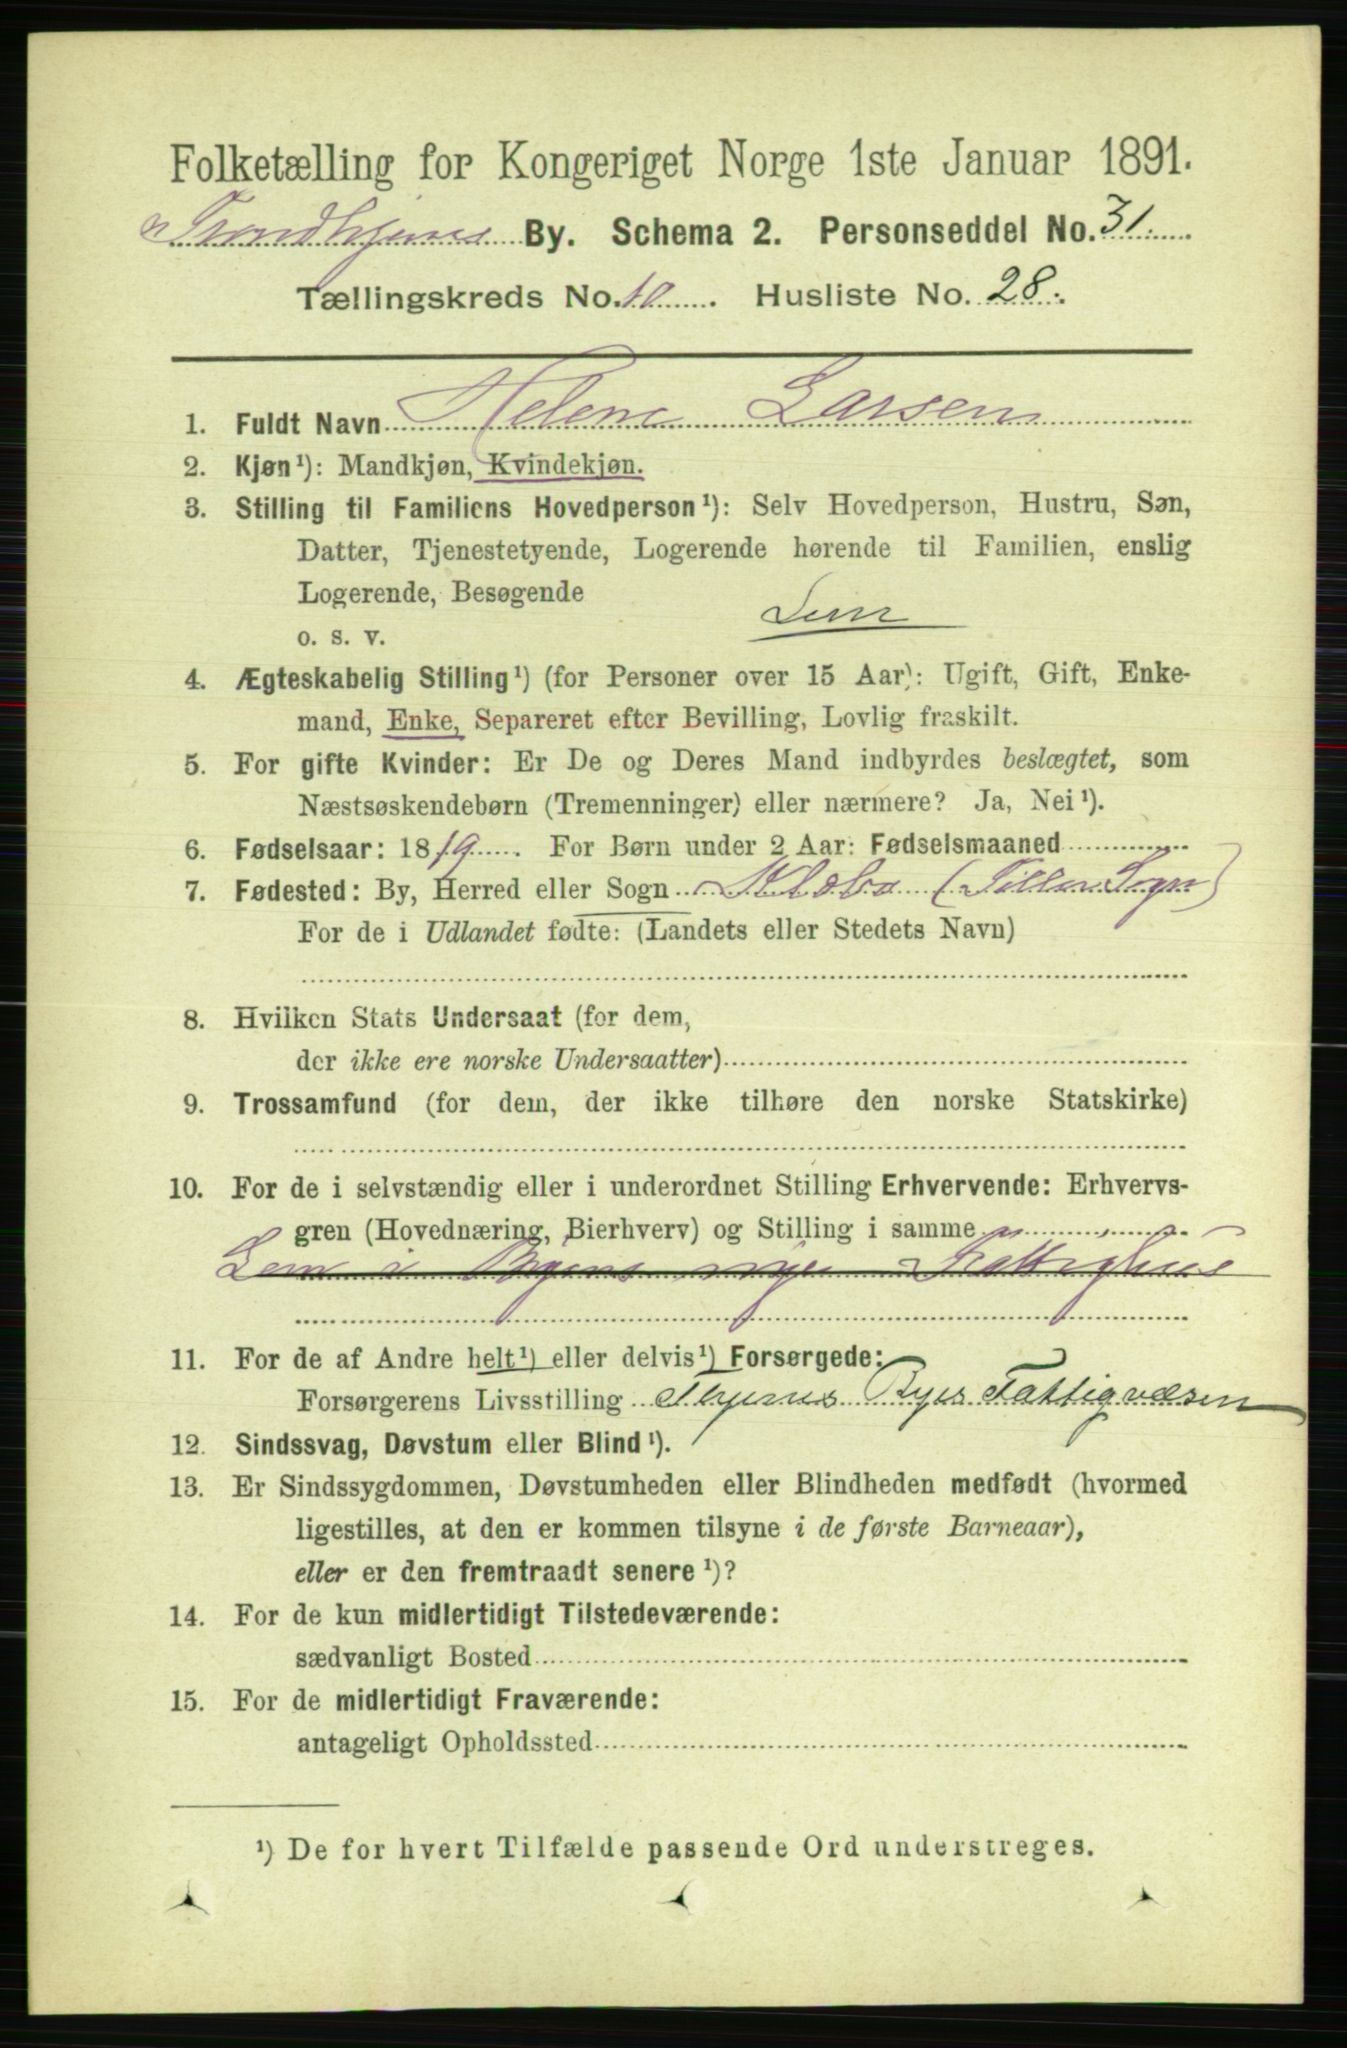 Folketælling for Kongeriget Norge 1ste Januar 1891.
Trondhjems By. Schema 2. Personseddel No. 31.
Tællingskreds No. 10. Husliste No. 28.
1. Fuldt Navn Helene Larsen
2. Kjøn¹): Mandkjøn, Kvindekjøn.
3. Stilling til Familiens Hovedperson¹): Selv Hovedperson, Hustru, Søn,
Datter, Tjenestetyende, Logerende hørende til Familien, enslig
Logerende, Besøgende
o. s. v. Lem
4. Ægteskabelig Stilling¹) (for Personer over 15 Aar): Ugift, Gift, Enke-
mand, Enke, Separeret efter Bevilling, Lovlig fraskilt.
5. For gifte Kvinder: Er De og Deres Mand indbyrdes beslægtet, som
Næstsøskendebørn (Tremenninger) eller nærmere? Ja, Nei¹).
6. Fødselsaar: 1819. For Børn under 2 Aar: Fødselsmaaned
7. Fødested: By, Herred eller Sogn Klæbo (Tiller Sogn)
For de i Udlandet fødte: (Landets eller Stedets Navn)
8. Hvilken Stats Undersaat (for dem,
der ikke ere norske Undersaatter)
9. Trossamfund (for dem, der ikke tilhøre den norske Statskirke)
10. For de i selvstændig eller i underordnet Stilling Erhvervende: Erhvervs-
gren (Hovednæring, Bierhverv) og Stilling i samme
Lem i Byens nye Fattighus
11. For de af Andre helt¹) eller delvis¹) Forsørgede:
Forsørgerens Livsstilling Thjems Byes Fattigvæsen
12. Sindssvag, Døvstum eller Blind¹).
13. Er Sindssygdommen, Døvstumheden eller Blindheden medfødt (hvormed
ligestilles, at den er kommen tilsyne i de første Barneaar),
eller er den fremtraadt senere¹)?
14. For de kun midlertidigt Tilstedeværende:
sædvanligt Bosted
15. For de midlertidigt Fraværende:
antageligt Opholdssted
¹) De for hvert Tilfælde passende Ord understreges.